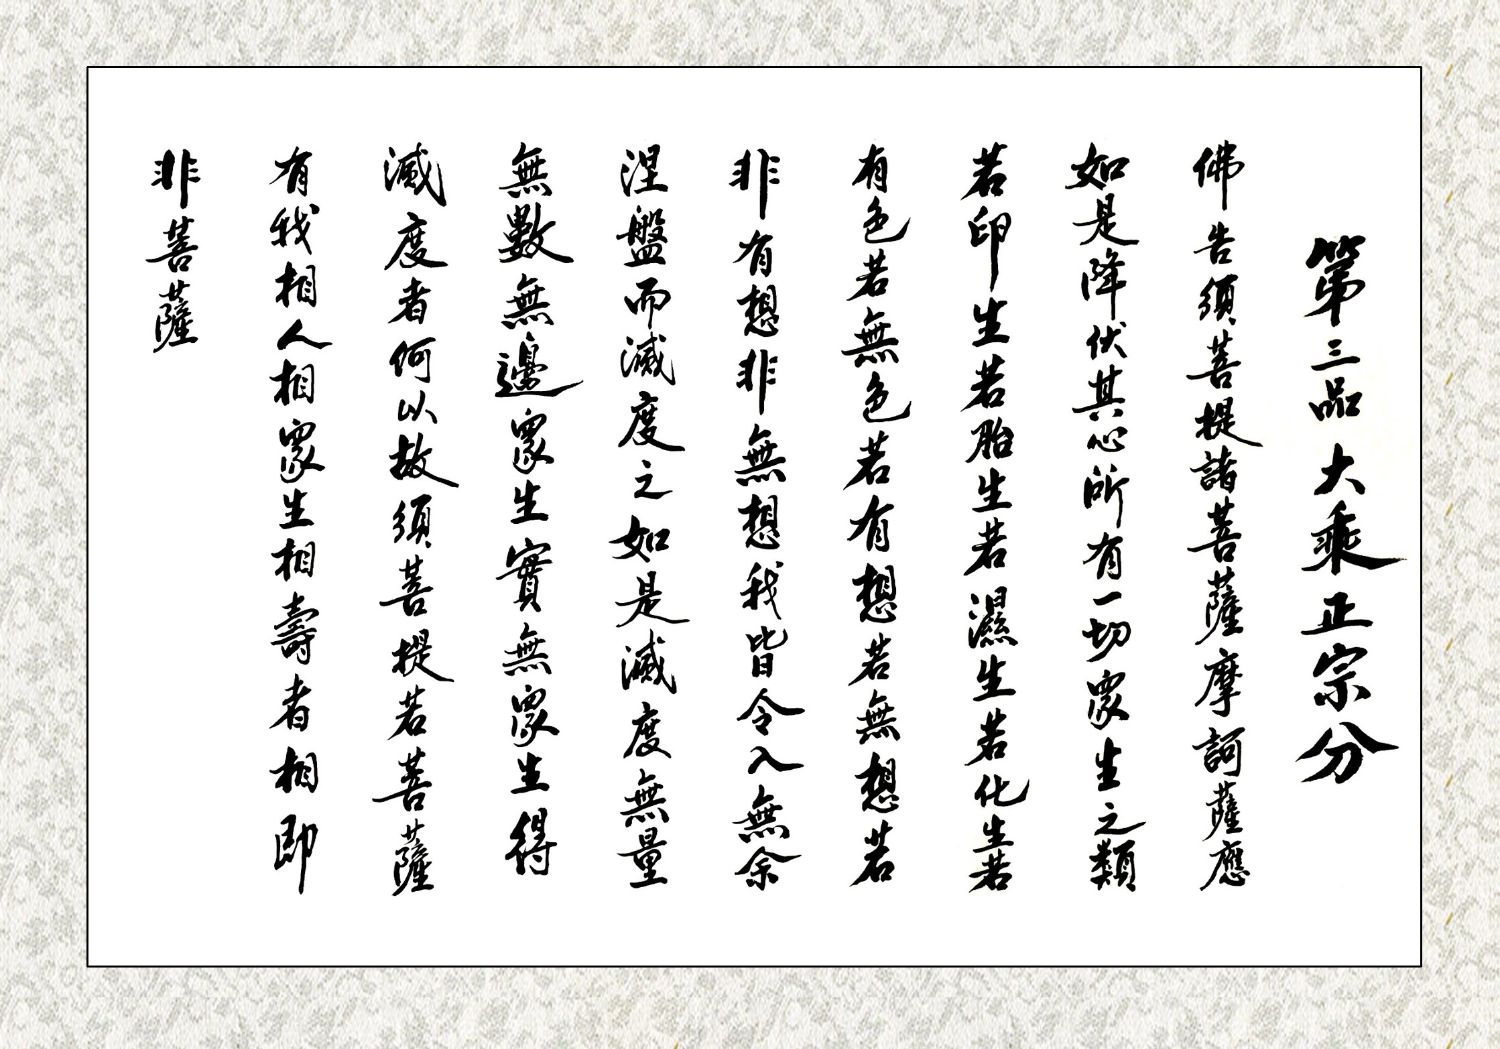 第三品大乘正宗分
佛告須菩提諸菩薩摩訶薩應
如是降伏其心所有一切眾生之類
若卵生若胎生若濕生若化生若
有色若無色若有想若無想若
非有想非無想我皆令入無余
涅盤而滅度之如是滅度無量
無數無邊眾生實無眾生得
滅度者何以故須菩提若菩薩
有我相人相眾生相壽者相即
非菩薩